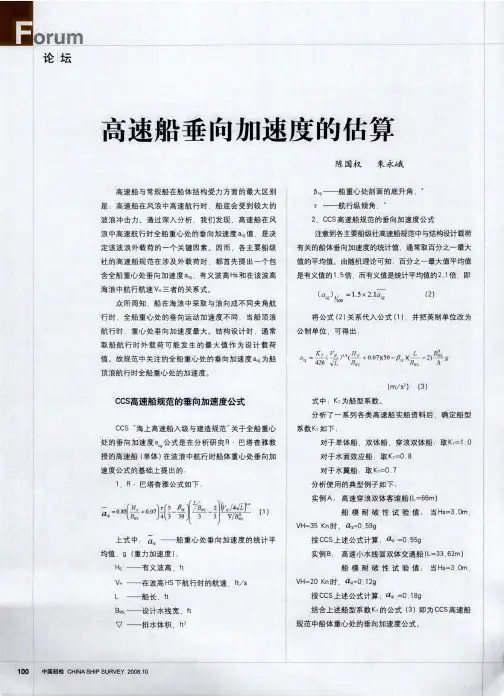 Forum
论 坛
高速船垂向加速度的估算
陈国权 朱永峨
高速船与常规船在船体结构受力方面的最大区别
是,高速船在风浪中高速航行时,船底会受到较大的
波浪冲击力。通过深入分析,我们发现,高速船在风
浪中高速航行时全船重心处的垂向加速度acg值,是决
定该波浪外载荷的一个关键因素。因而,各主要船级
社的高速船规范在涉及外载荷时,都首先提出一个包
含全船重心处垂向加速度acg、有义波高Hs和在该波高
海浪中航行航速VH三者的关系式。
众所周知,船在海浪中采取与浪向成不同夹角航
行时,全船重心处的垂向运动加速度不同,当船顶浪
航行时,重心处垂向加速度最大。结构设计时,通常
取船航行时外载荷可能发生的最大值作为设计载荷
值。故规范中关注的全船重心处的垂向加速度acg为船
顶浪航行时全船重心处的加速度。
CCS高速船规范的垂向加速度公式
CCS“海上高速船入级与建造规范”关于全船重心
处的垂向加速度acg公式是在分析研究R·巴塔杳雅教
授的高速船(单体)在波浪中航行船体重心处垂向加
速度公式的基础上提出的。
1、R·巴塔杳雅公式如下:
(1)
上式中:acg——船重心处垂向加速度的统计平
均值,g(重力加速度);
HS——有义波高,ft
VH——在波高HS下航行时的航速,ft/s
L——船长,ft
BWL——设计水线宽,ft
▽——排水体积,ft³
βcg——船重心处剖面的底升角,°
τ——航行纵倾角,°
2、CCS高速船规范的垂向加速度公式
注意到各主要船级社高速船规范中与结构设计载荷
有关的船体垂向加速度的统计值,通常取百分之一最大
值的平均值。由随机理论可知,百分之一最大值平均值
是有义值的1.5倍,而有义值是统计平均值的2.1倍,即
(acg)1/100 =1.5×2.1acg (2)
将公式(2)关系代入公式(1),并把英制单位改为
公制单位,可得出:
(m/s²) (3)
式中:KT为船型系数。
分析了一系列各类高速船实船资料后,确定船型
系数KT如下:
对于单体船,双体船,穿浪双体船:取KT=1.0
对于水面效应船,取KT=0.8
对于水翼船,取KT=0.7
分析使用的典型例子如下:
实例A:高速穿浪双体客渡船(L=66m)
船模耐破性试验值:当Hs=3.0m,
VH=35 Kn时,acg=0.59g
按CCS上述公式计算:acg=0.55g
实例B:高速小水线面双体交通船(L=33.62m)
船模耐破性试验值:当Hs=3.0m,
VH=20 Kn时,acg=0.12g
按CCS上述公式计算:acg=0.18g
结合上述船型系数KT的公式(3)即为CCS高速船
规范中船体重心处的垂向加速度公式。
100 中国船检 CHINA SHIP SURVEY 2008.10